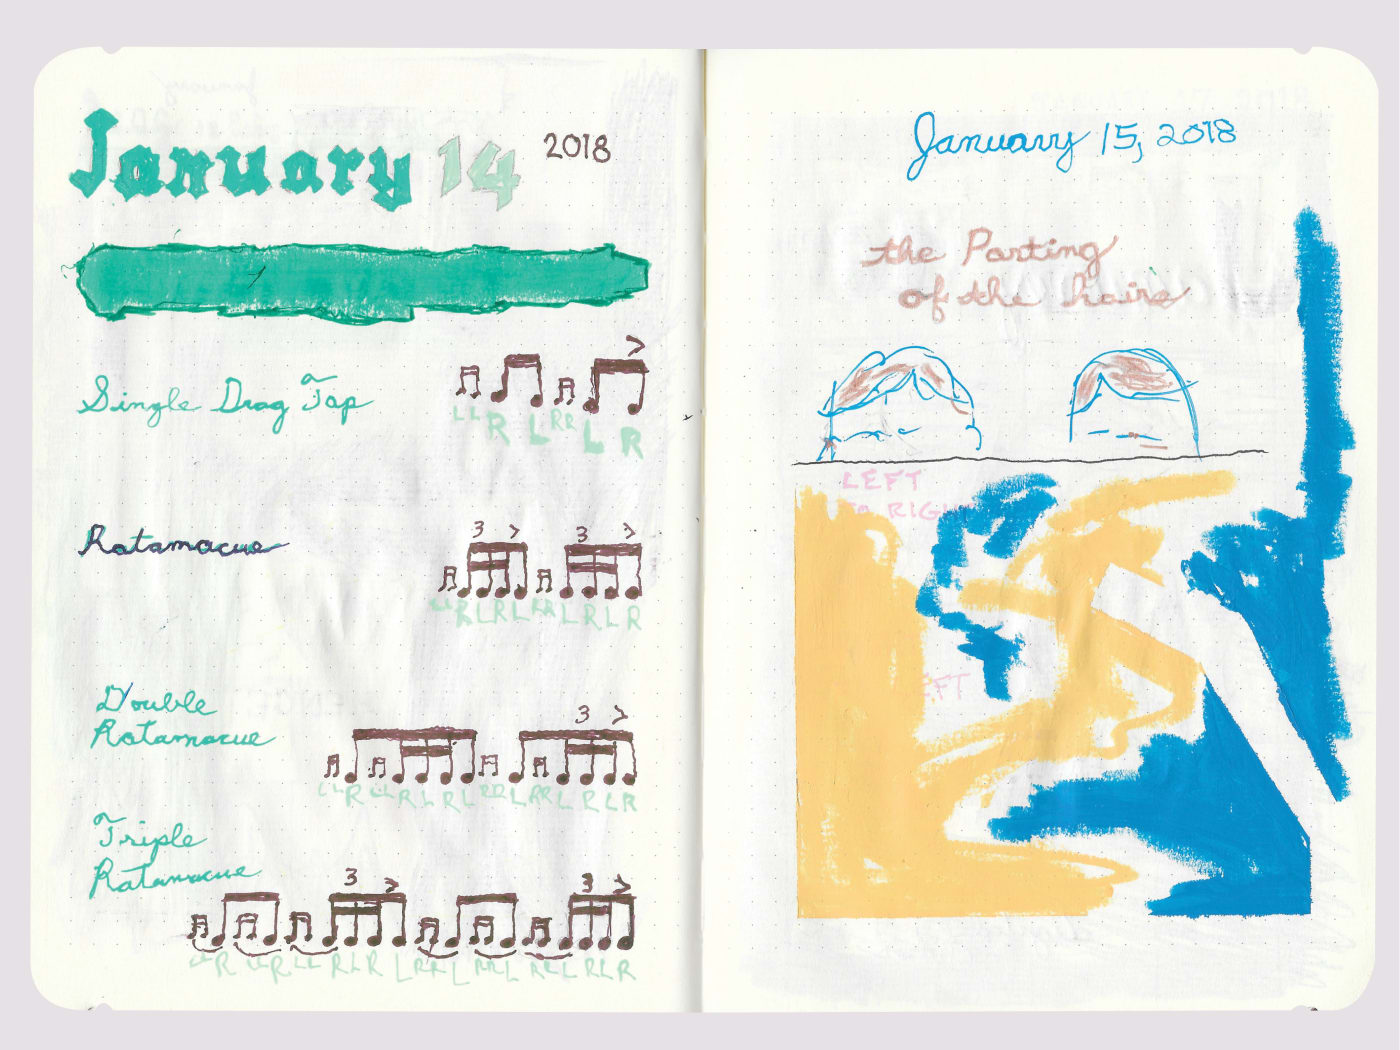 January 14 2018
Single Drag Tap
3 > 3 >
>
LLR LRR L R
Ratamacue
LLRLRL RRLRLR
Double
Ratamacue
3 >
LLR LLRLRL RRL RRLRLR
Triple
Ratamacue
3 > 3 >
LLR LLR LLRLR LRRL RRL RRLRLR
January 15, 2018
the Parting
of the hairs
LEFT
TO RIGH
FT